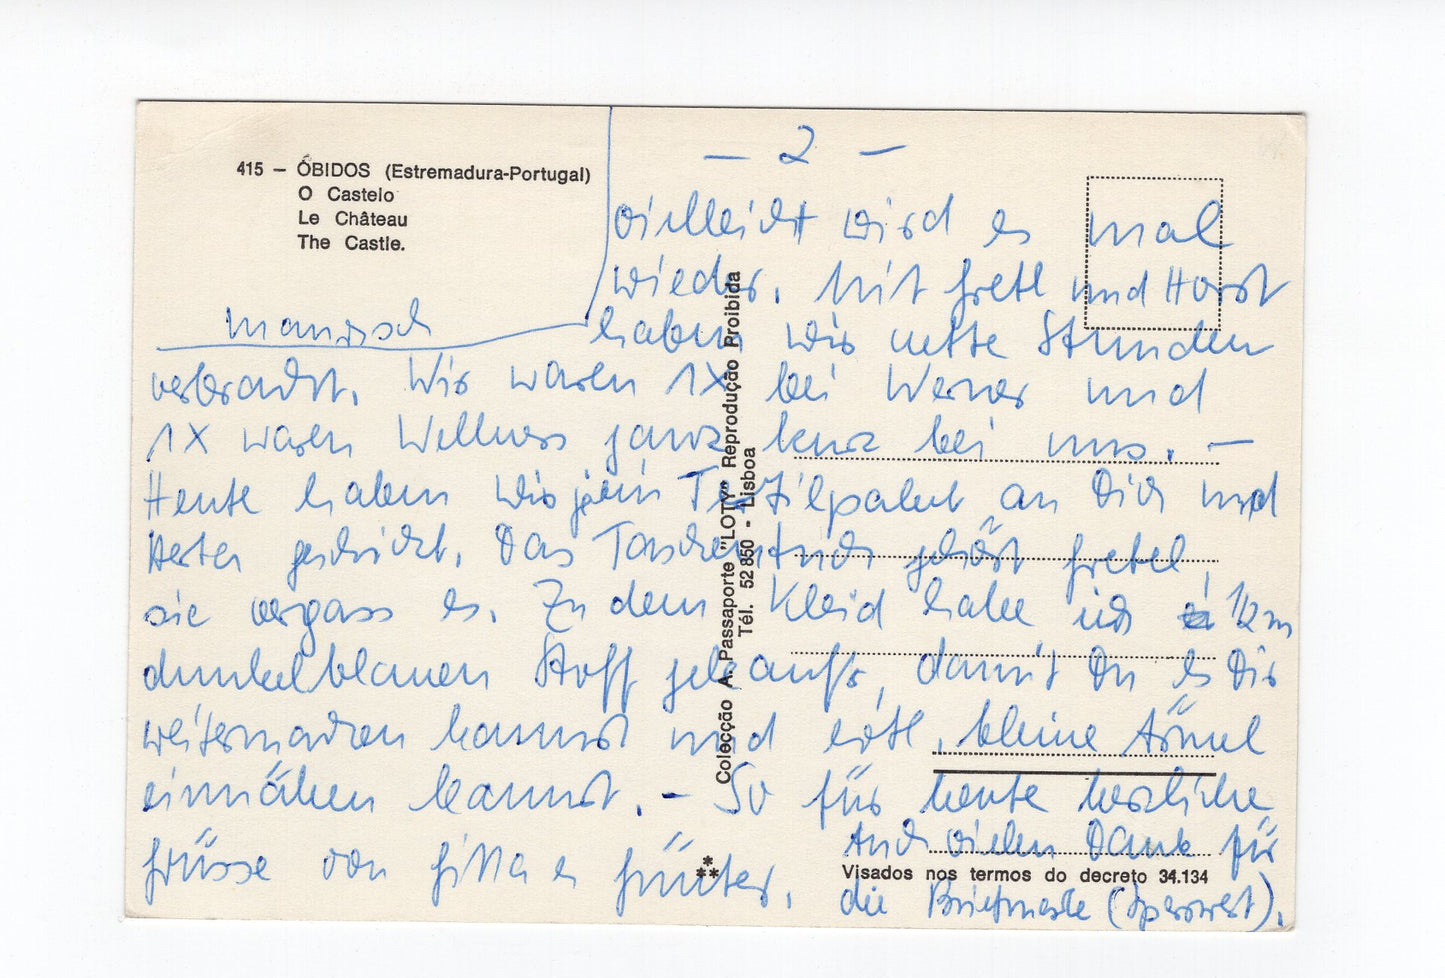 415 — ÓBIDOS (Estremadura-Portugal)
O Castelo
Le Château
The Castle.
— 2 —
vielleicht wird es mal
wieder. Mit Gretl und Horst
haben wir nette Stunden
verbracht. Wir waren 1X bei Werner und
1X waren Wellners ganz kurz bei uns. —
Heute haben wir ein Textilpaket an Dich und
Herta geschickt. Das Taschentuch gehört Gretel,
sie vergass es. Zu dem Kleid habe ich 1/2 m
dunkelblauen Stoff gekauft, damit Du es Dir
weitermachen kannst und evtl. kleine Ärmel
einnähen kannst. — So für heute herzliche
Grüsse von Gitta u Günter.
Auch vielen Dank für
die Briefmarke (Sperrwert).
Colecção A. Passaporte "LOTY" Reprodução Proibida
Tél. 52 850 - Lisboa
Visados nos termos do decreto 34.134